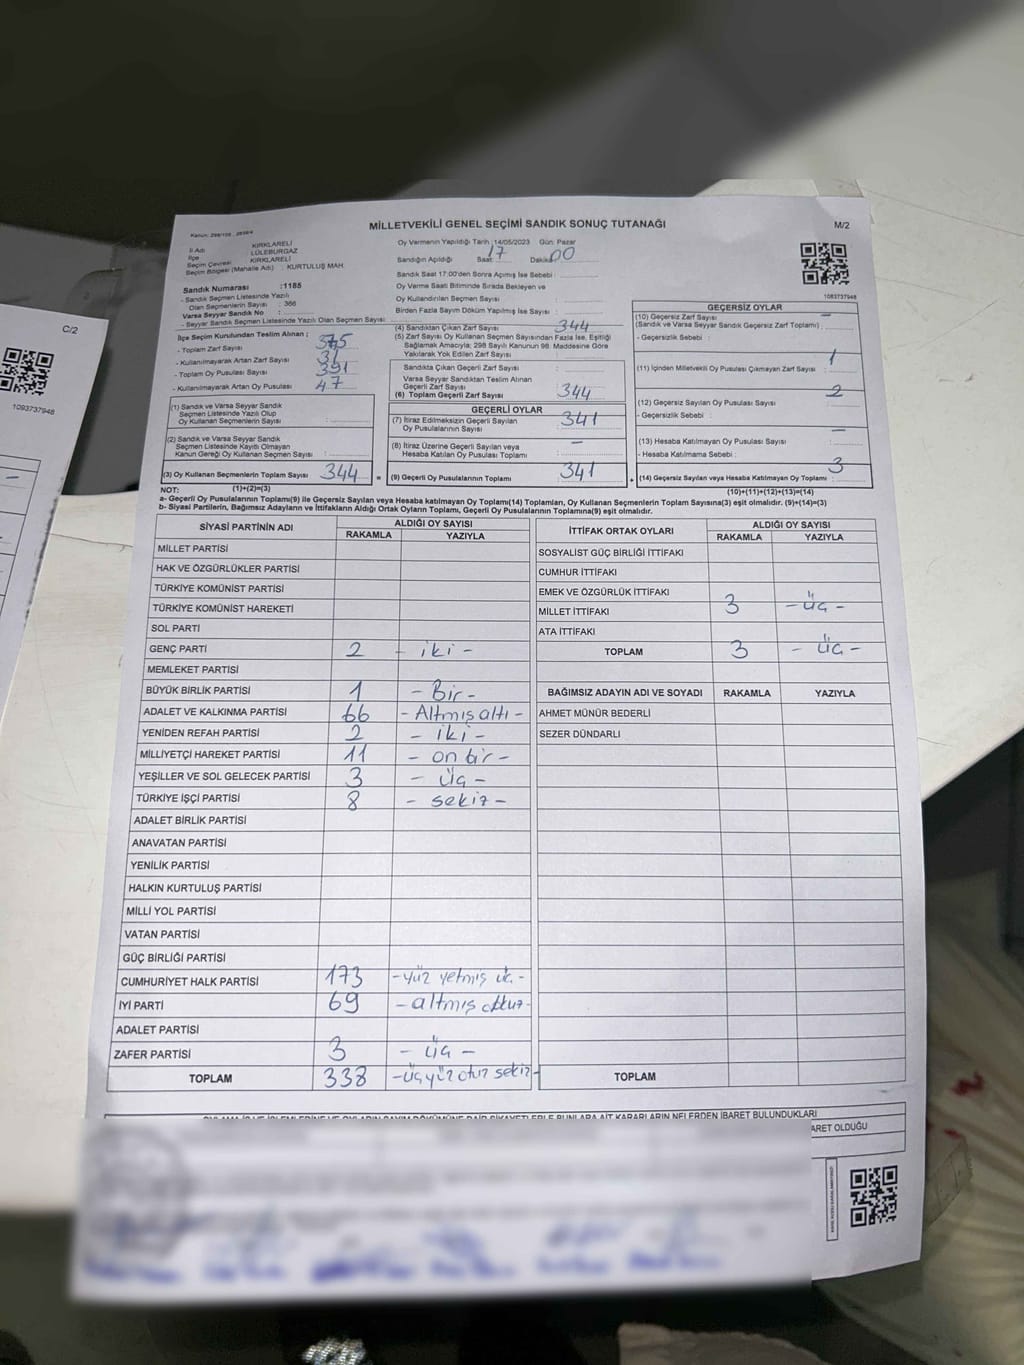 MİLLETVEKİLİ GENEL SEÇİMİ SANDIK SONUÇ TUTANAĞI
M/2
İl Adı KIRKLARELİ
İlçe LÜLEBURGAZ
Seçim Çevresi KIRKLARELİ
Seçim Bölgesi (Mahalle Adı) : KURTULUŞ MAH.
Oy Vermenin Yapıldığı Tarih :14/05/2023 Gün: Pazar
Sandığın Açıldığı Saat: 17 Dakika: 00
Sandık Saat 17:00'den Sonra Açımış İse Sebebi :
Oy Verme Saati Bitiminde Sırada Bekleyen ve
Oy Kullandırılan Seçmen Sayısı :
Birden Fazla Sayım Döküm Yapılmış İse Sayısı :
Sandık Numarası :1185
- Sandık Seçmen Listesinde Yazılı
Olan Seçmenlerin Sayısı : 366
Varsa Seyyar Sandık No :
- Seyyar Sandık Seçmen Listesinde Yazılı Olan Seçmen Sayısı :
İlçe Seçim Kurulundan Teslim Alınan :
- Toplam Zarf Sayısı
- Kullanılmayarak Artan Zarf Sayısı 31
- Toplam Oy Pusulası Sayısı 391
- Kullanılmayarak Artan Oy Pusulası 47
(1) Sandık ve Varsa Seyyar Sandık
Seçmen Listesinde Yazılı Olup
Oy Kullanan Seçmen Sayısı :
(2) Sandık ve Varsa Seyyar Sandık
Seçmen Listesinde Kayıtlı Olmayan
Kanun Gereği Oy Kullanan Seçmen Sayısı :
(3) Oy Kullanan Seçmenlerin Toplam Sayısı 344 =
(1)+(2)=(3)
(4) Sandıktan Çıkan Zarf Sayısı 344
(5) Zarf Sayısı Oy Kullanan Seçmen Sayısından Fazla İse, Eşitliği
Sağlamak Amacıyla; 298 Sayılı Kanunun 98. Maddesine Göre
Yakılarak Yok Edilen Zarf Sayısı :
Sandıkta Çıkan Geçerli Zarf Sayısı :
Varsa Seyyar Sandıktan Teslim Alınan
Geçerli Zarf Sayısı
(6) Toplam Geçerli Zarf Sayısı 344
GEÇERLİ OYLAR
(7) İtiraz Edilmeksizin Geçerli Sayılan
Oy Pusulalarının Sayısı 341
(8) İtiraz Üzerine Geçerli Sayılan veya
Hesaba Katılan Oy Pusulası Toplamı –
(9) Geçerli Oy Pusulalarının Toplamı 341 +
1083737948
GEÇERSİZ OYLAR
(10) Geçersiz Zarf Sayısı –
(Sandık ve Varsa Seyyar Sandık Geçersiz Zarf Toplamı)
- Geçersizlik Sebebi :
(11) İçinden Milletvekili Oy Pusulası Çıkmayan Zarf Sayısı 1
(12) Geçersiz Sayılan Oy Pusulası Sayısı 2
-Geçersizlik Sebebi :
(13) Hesaba Katılmayan Oy Pusulası Sayısı –
- Hesaba Katılmama Sebebi :
(14) Geçersiz Sayılan veya Hesaba Katılmayan Oy Toplamı 3
(10)+(11)+(12)+(13)=(14)
NOT:
a- Geçerli Oy Pusulalarının Toplamı(9) ile Geçersiz Sayılan veya Hesaba katılmayan Oy Toplamı(14) Toplamları, Oy Kullanan Seçmenlerin Toplam Sayısına(3) eşit olmalıdır. (9)+(14)=(3)
b- Siyasi Partilerin, Bağımsız Adayların ve İttifakların Aldığı Ortak Oyların Toplamı, Geçerli Oy Pusulalarının Toplamına(9) eşit olmalıdır.
SİYASİ PARTİNİN ADI ALDIĞI OY SAYISI
RAKAMLA YAZIYLA
MİLLET PARTİSİ
HAK VE ÖZGÜRLÜKLER PARTİSİ
TÜRKİYE KOMÜNİST PARTİSİ
TÜRKİYE KOMÜNİST HAREKETİ
SOL PARTİ
GENÇ PARTİ 2 - iki -
MEMLEKET PARTİSİ
BÜYÜK BİRLİK PARTİSİ 1 - Bir -
ADALET VE KALKINMA PARTİSİ 66 - Altmış altı -
YENİDEN REFAH PARTİSİ 2 - iki -
MİLLİYETÇİ HAREKET PARTİSİ 11 - on bir -
YEŞİLLER VE SOL GELECEK PARTİSİ 3 - üç -
TÜRKİYE İŞÇİ PARTİSİ 8 - sekiz -
ADALET BİRLİK PARTİSİ
ANAVATAN PARTİSİ
YENİLİK PARTİSİ
HALKIN KURTULUŞ PARTİSİ
MİLLİ YOL PARTİSİ
VATAN PARTİSİ
GÜÇ BİRLİĞİ PARTİSİ
CUMHURİYET HALK PARTİSİ 173 -yüz yetmiş üç -
İYİ PARTİ 69 - altmış dokuz -
ADALET PARTİSİ
ZAFER PARTİSİ 3 - üç -
TOPLAM 338 -üçyüz otuz sekiz-
İTTİFAK ORTAK OYLARI ALDIĞI OY SAYISI
RAKAMLA YAZIYLA
SOSYALİST GÜÇ BİRLİĞİ İTTİFAKI
CUMHUR İTTİFAKI
EMEK VE ÖZGÜRLÜK İTTİFAKI
MİLLET İTTİFAKI 3 - üç -
ATA İTTİFAKI
TOPLAM 3 - üç -
BAĞIMSIZ ADAYIN ADI VE SOYADI RAKAMLA YAZIYLA
AHMET MÜNÜR BEDERLİ
SEZER DÜNDARLI
TOPLAM
ARET OLDUĞU
C/2
1093737948